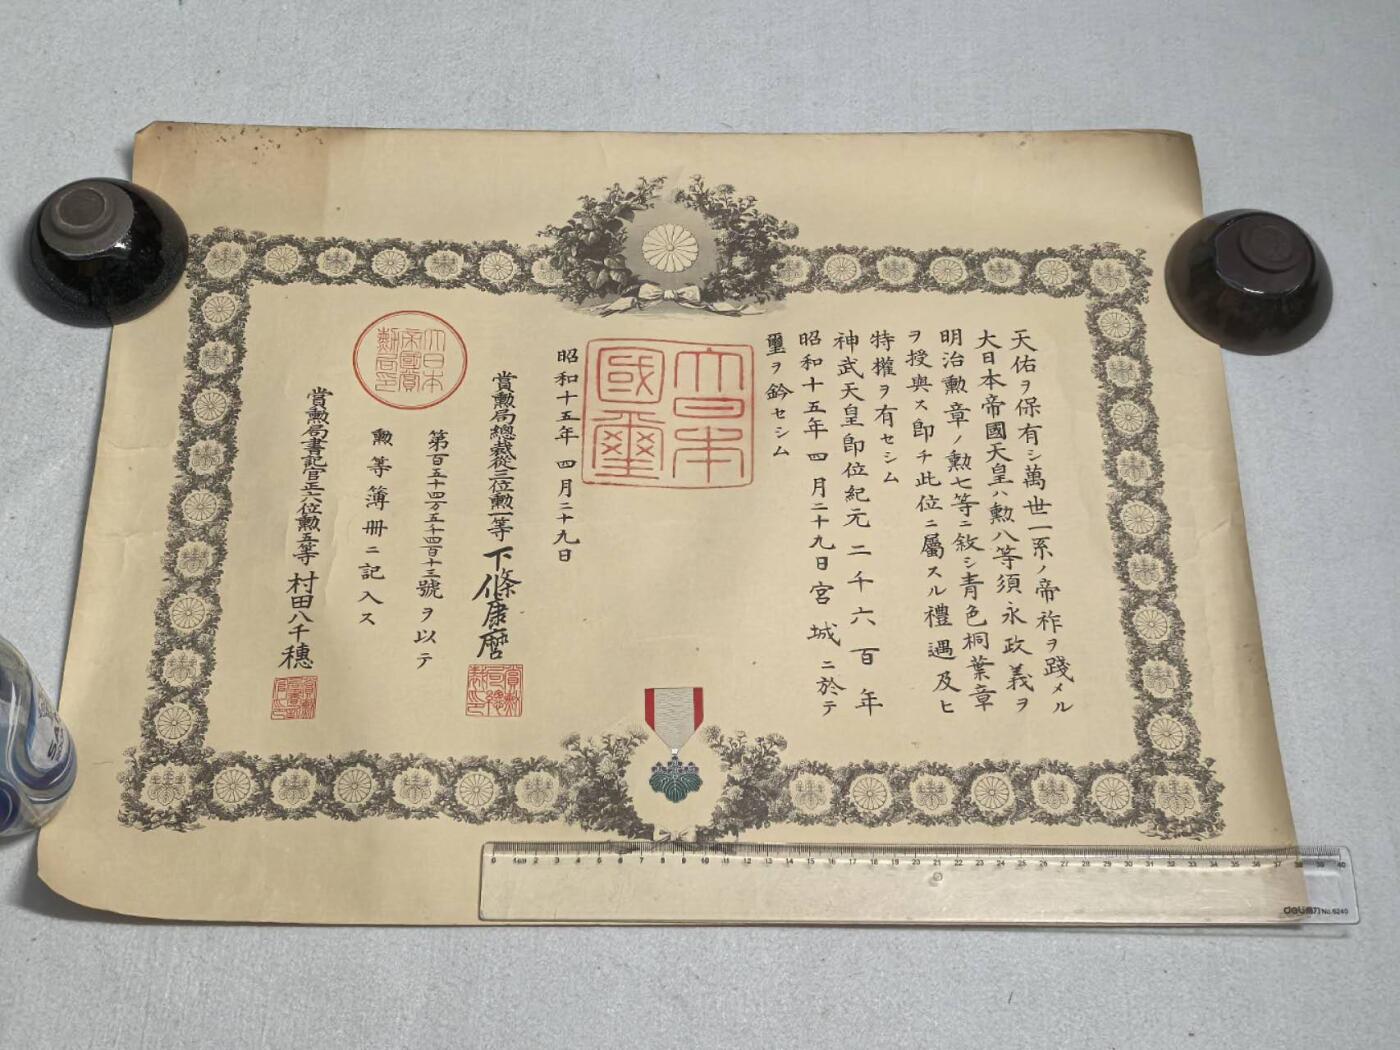 天佑ヲ保有シ萬世一系ノ帝祚ヲ踐メル
大日本帝國天皇ハ勲八等須永政義ヲ
明治勲章ノ勲七等ニ敘シ青色桐葉章
ヲ授與ス即チ此位ニ屬スル禮遇及ヒ
特權ヲ有セシム
神武天皇即位紀元二千六百年
昭和十五年四月二十九日宮城ニ於テ
璽ヲ鈐セシム
大日本
國璽
昭和十五年四月二十九日
賞勲局總裁從三位勲一等下條康麿
賞勲
局總
裁印
第百五十四万五千四百十三號ヲ以テ
勲等簿册ニ記入ス
大日本
帝國賞
勲局印
賞勲局書記官正六位勲五等村田八千穗
賞勲
局書記
官印
0 1cm 2 3 4 5 6 7 8 9 10 11 12 13 14 15 16 17 18 19 20 21 22 23 24 25 26 27 28 29 30 31 32 33 34 35 36 37 38 39 40
deli得力 No.6240